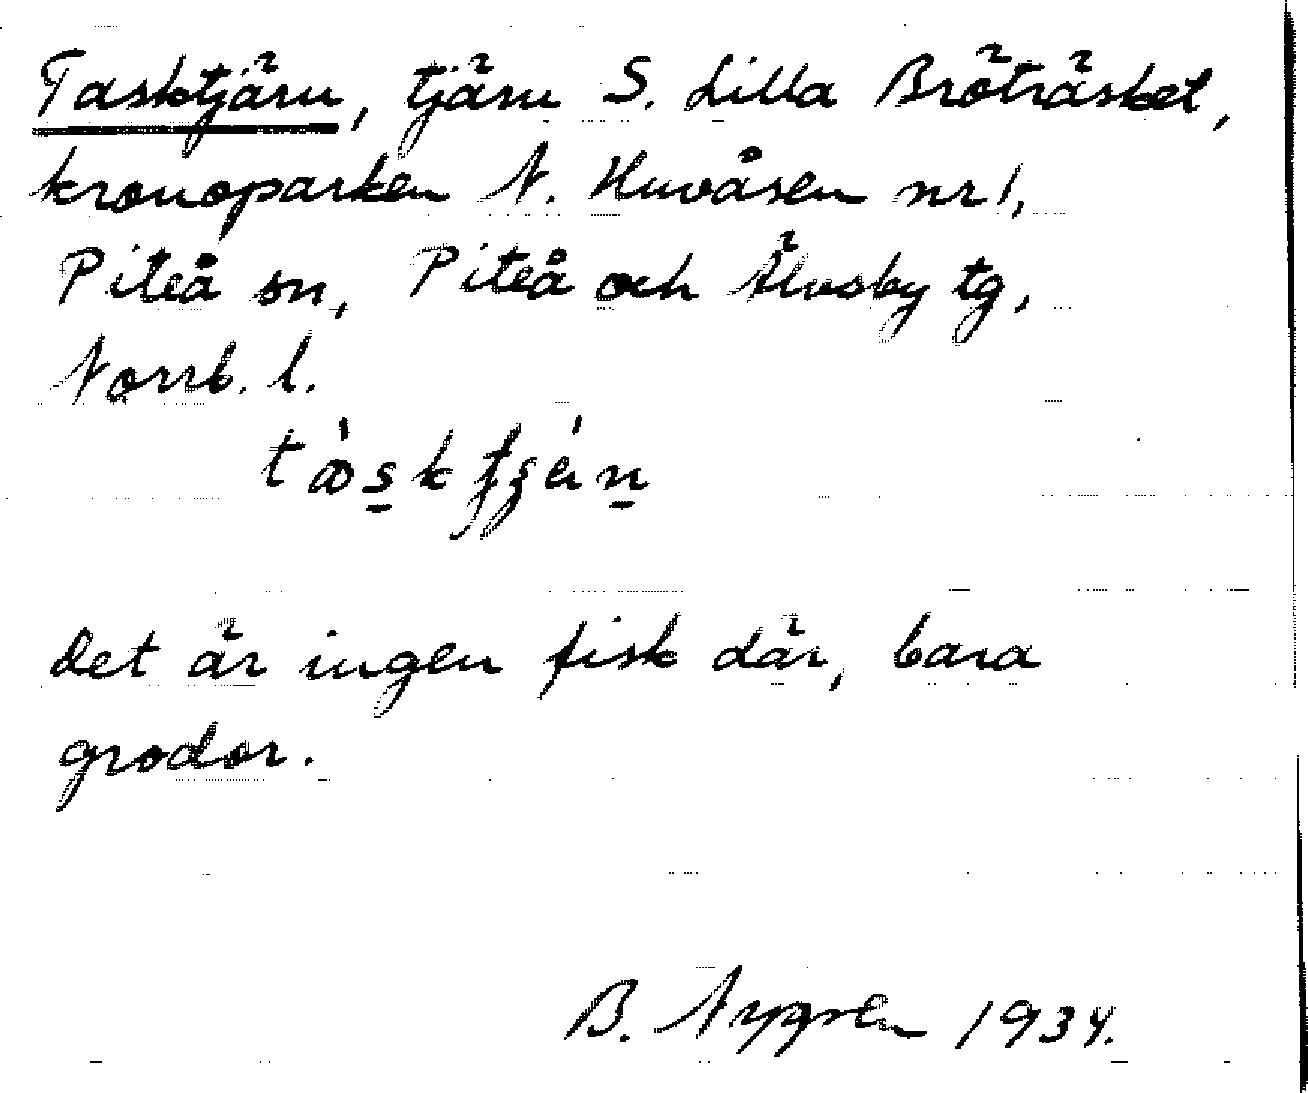 Tasktjärn, tjärn S. Lilla Bröträsket,
kronoparken N. Huvåsen nr 1,
Piteå sn, Piteå och Älvsby tg,
Norrb. l.
Det är ingen fisk där, bara
grodor.
B. Nygren 1934.